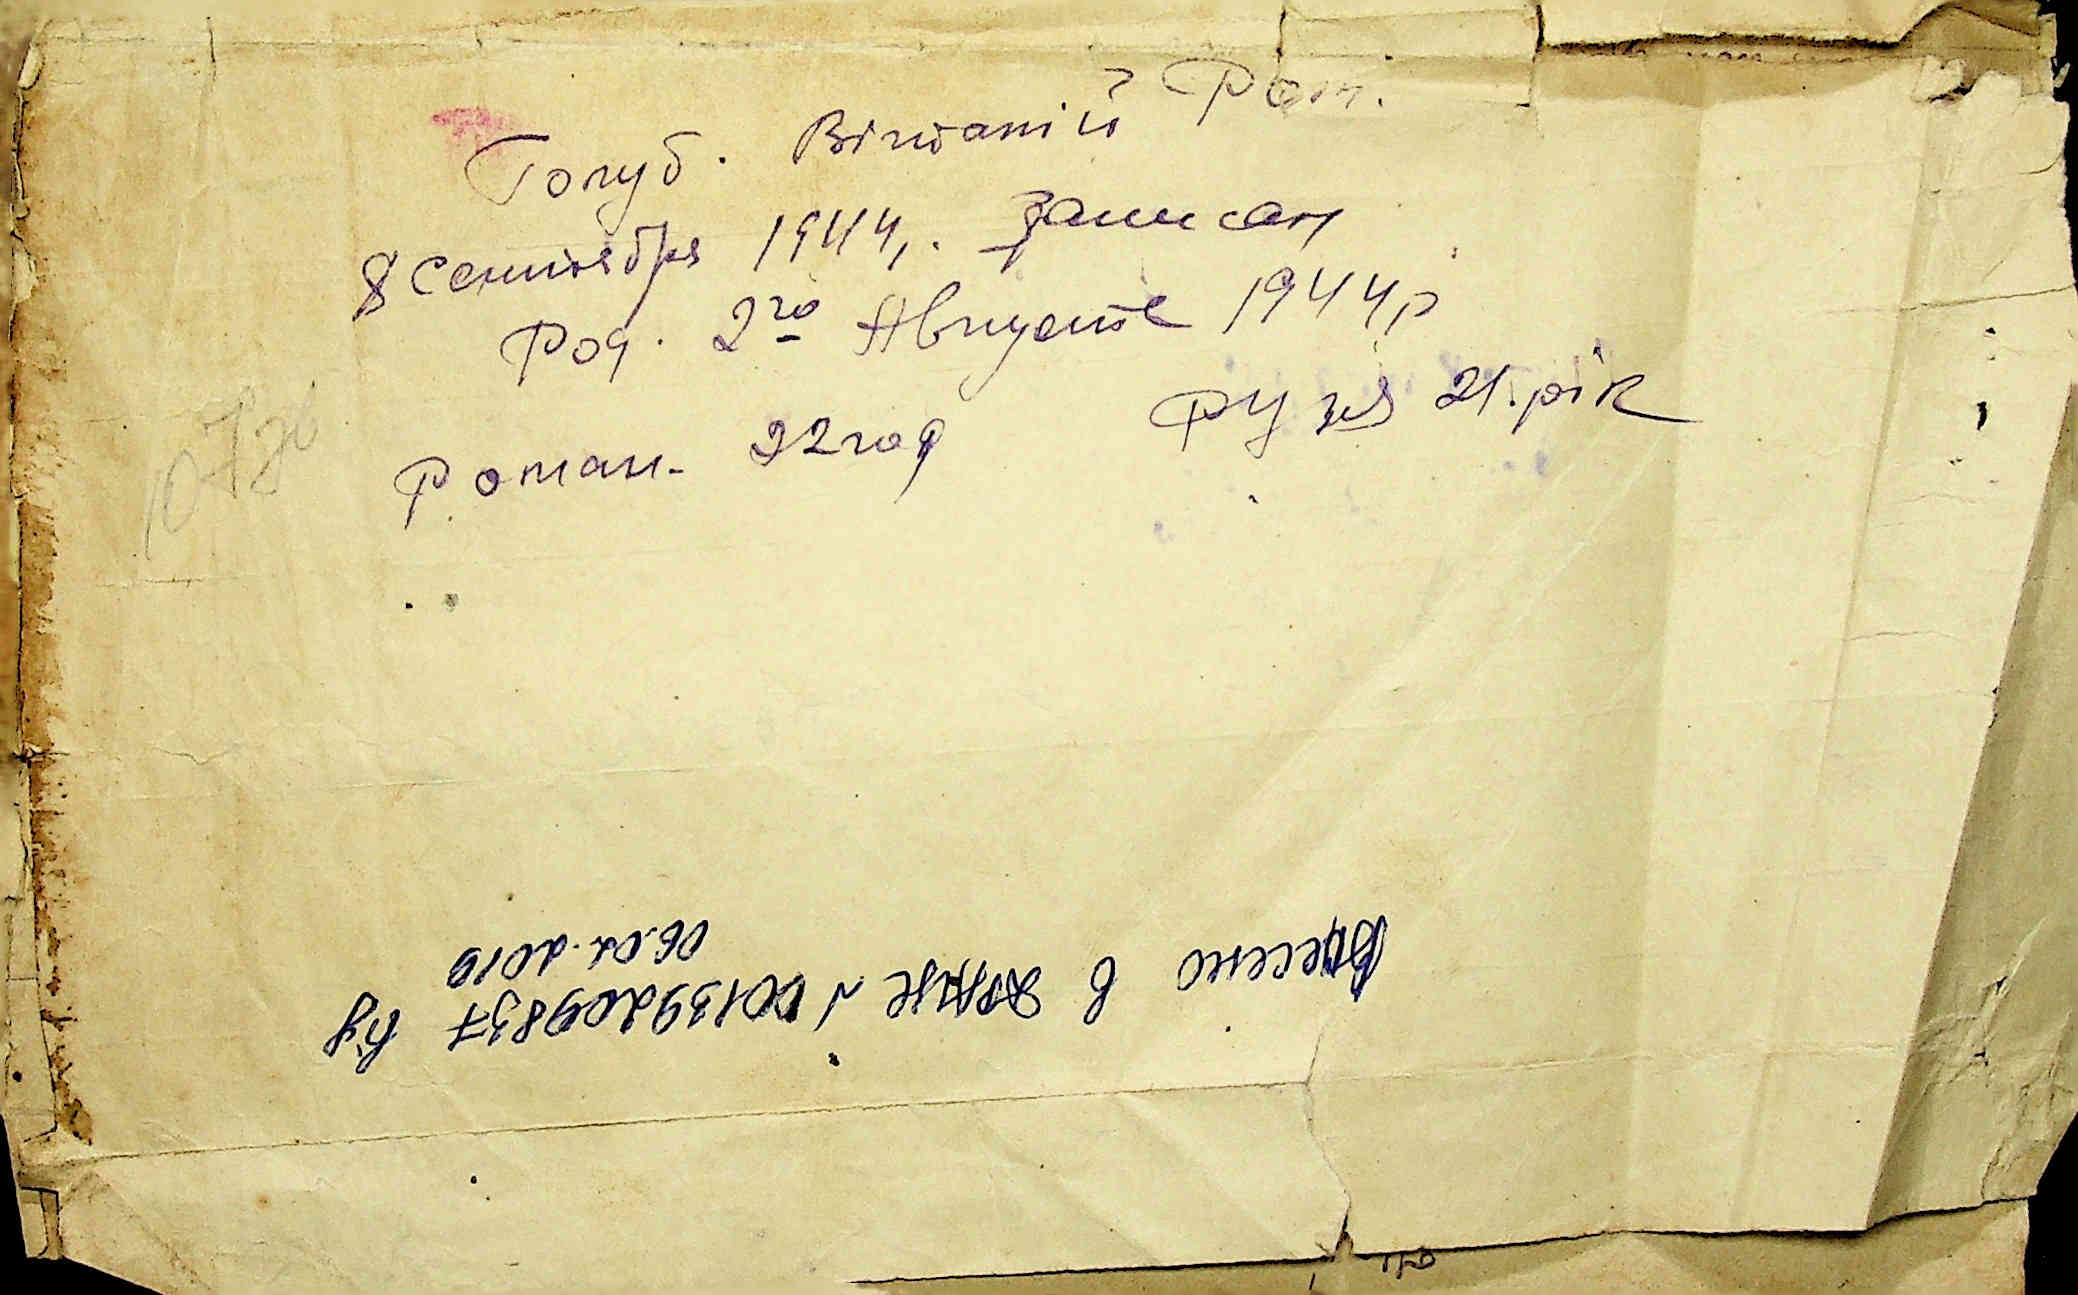 Голуб. Віталій Ром.
8 Сентября 1944, Записан
Род. 2го Августа 1944р
Роман. 22 год Рузя 21.рік
107 зв
Внесено в ДРАЦС № 00139209837
06.02.2010